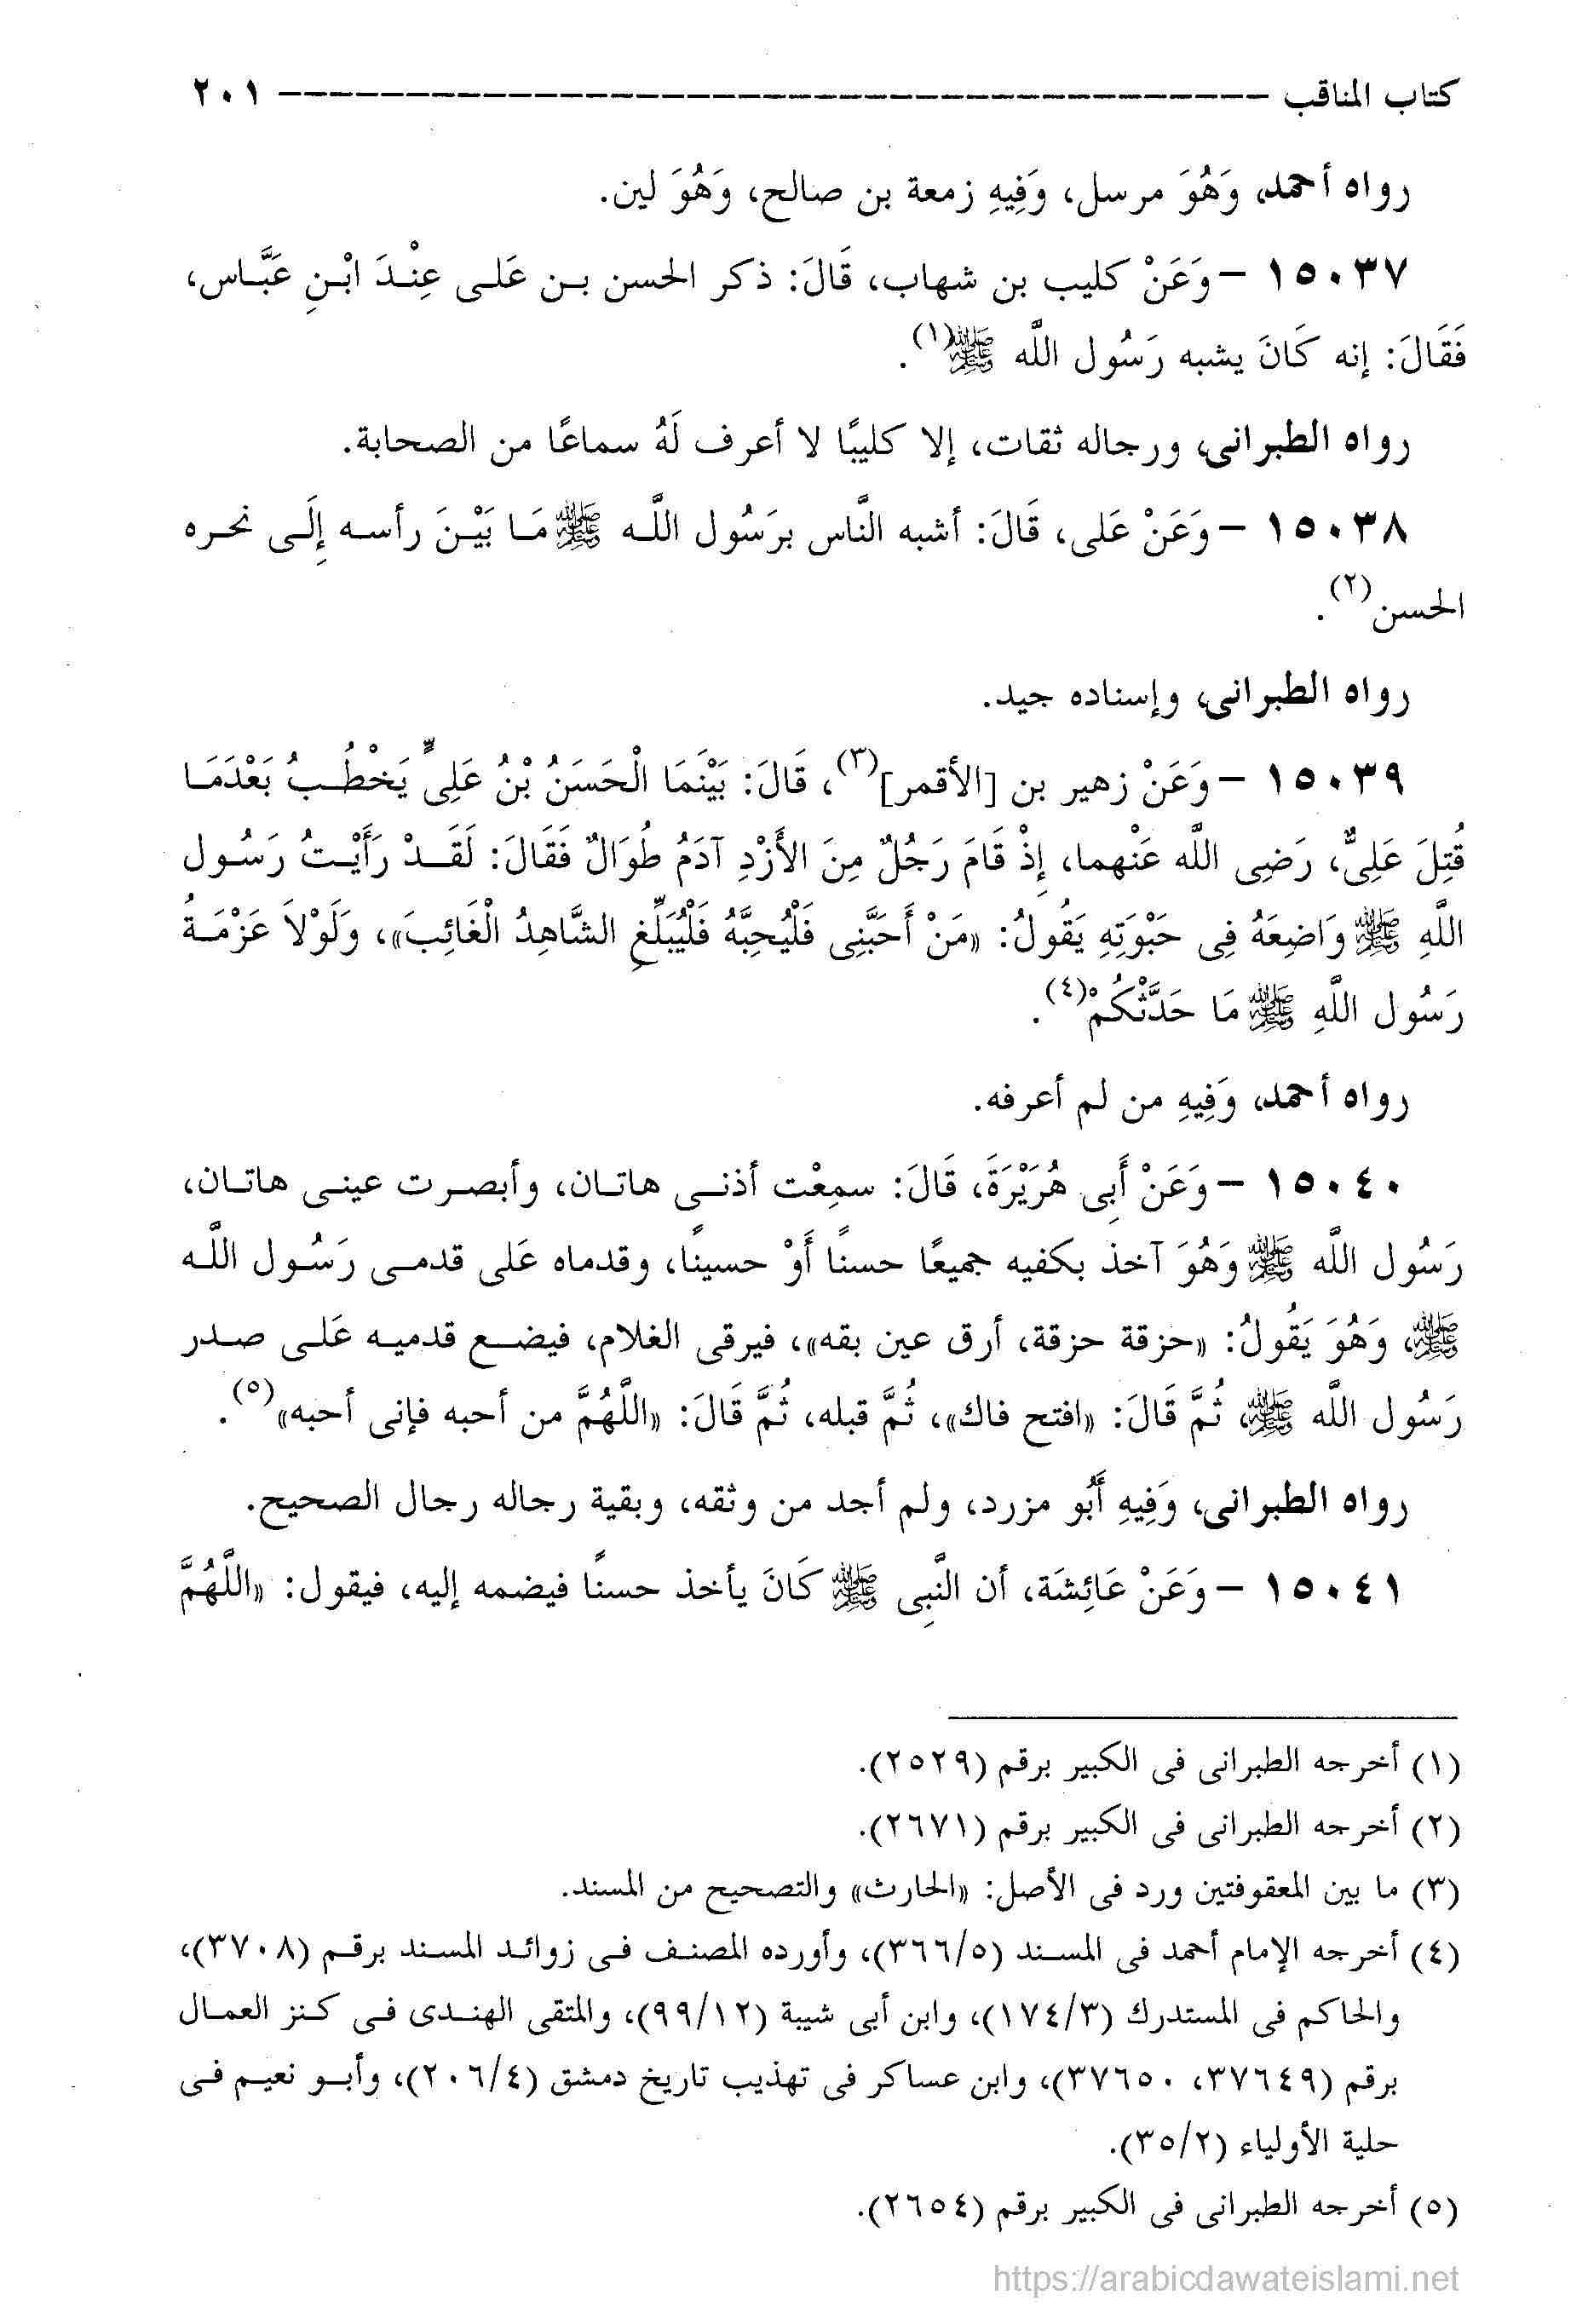 كتاب المناقب ---------------------------------------- ٢٠١
رواه أحمد، وَهُوَ مرسل، وَفِيهِ زمعة بن صالح، وَهُوَ لين.
١٥٠٣٧ - وَعَنْ كليب بن شهاب، قَالَ: ذكر الحسن بن عَلى عِنْدَ ابْنِ عَبَّاس،
فَقَالَ: إنه كَانَ يشبه رَسُول اللَّه ﷺ(١).
رواه الطبرانى، ورجاله ثقات، إلا كليبًا لا أعرف لَهُ سماعًا من الصحابة.
١٥٠٣٨ - وَعَنْ عَلى، قَالَ: أشبه النَّاس برَسُول اللَّه ﷺ مَا بَيْنَ رأسه إِلَى نحره
الحسن(٢).
رواه الطبرانى، وإسناده جيد.
١٥٠٣٩ - وَعَنْ زهير بن [الأقمر](٣)، قَالَ: بَيْنَمَا الْحَسَنُ بْنُ عَلِىٍّ يَخْطُبُ بَعْدَمَا
قُتِلَ عَلِىٌّ، رَضِى اللَّه عَنْهما، إِذْ قَامَ رَجُلٌ مِنَ الأَزْدِ آدَمُ طُوَالٌ فَقَالَ: لَقَدْ رَأَيْتُ رَسُول
اللَّهِ ﷺ وَاضِعَهُ فِى حَبْوَتِهِ يَقُولُ: «مَنْ أَحَبَّنِى فَلْيُحِبَّهُ فَلْيُبَلِّغِ الشَّاهِدُ الْغَائِبَ»، وَلَوْلاَ عَزْمَةُ
رَسُول اللَّهِ ﷺ مَا حَدَّثْتُكُمْ(٤).
رواه أحمد، وَفِيهِ من لم أعرفه.
١٥٠٤٠ - وَعَنْ أَبِى هُرَيْرَةَ، قَالَ: سمِعْت أذنى هاتان، وأبصرت عينى هاتان،
رَسُول اللَّه ﷺ وَهُوَ آخذ بكفيه جميعًا حسنًا أَوْ حسينًا، وقدماه عَلى قدمى رَسُول اللَّه
ﷺ، وَهُوَ يَقُولُ: «حزقة حزقة، أرق عين بقه»، فيرقى الغلام، فيضع قدميه عَلى صدر
رَسُول اللَّه ﷺ، ثُمَّ قَالَ: «افتح فاك»، ثُمَّ قبله، ثُمَّ قَالَ: «اللَّهُمَّ من أحبه فإنى أحبه»(٥).
رواه الطبرانى، وَفِيهِ أَبُو مزرد، ولم أجد من وثقه، وبقية رجاله رجال الصحيح.
١٥٠٤١ - وَعَنْ عَائِشَة، أن النَّبِى ﷺ كَانَ يأخذ حسنًا فيضمه إليه، فيقول: «اللَّهُمَّ
(١) أخرجه الطبرانى فى الكبير برقم (٢٥٢٩).
(٢) أخرجه الطبرانى فى الكبير برقم (٢٦٧١).
(٣) ما بين المعقوفتين ورد فى الأصل: «الحارث» والتصحيح من المسند.
(٤) أخرجه الإمام أحمد فى المسند (٣٦٦/٥)، وأورده المصنف فى زوائد المسند برقم (٣٧٠٨)،
والحاكم فى المستدرك (١٧٤/٣)، وابن أبى شيبة (٩٩/١٢)، والمتقى الهندى فى كنز العمال
برقم (٣٧٦٤٩، ٣٧٦٥٠)، وابن عساكر فى تهذيب تاريخ دمشق (٢٠٦/٤)، وأبو نعيم فى
حلية الأولياء (٣٥/٢).
(٥) أخرجه الطبرانى فى الكبير برقم (٢٦٥٤).
https://arabicdawateislami.net